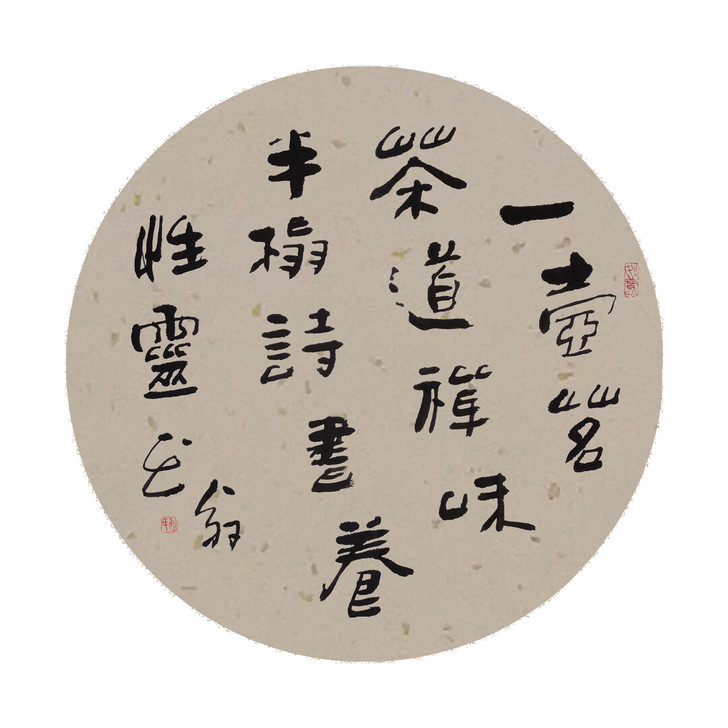 一壺茗
茶道禅味
半榻詩書養
性靈
翁